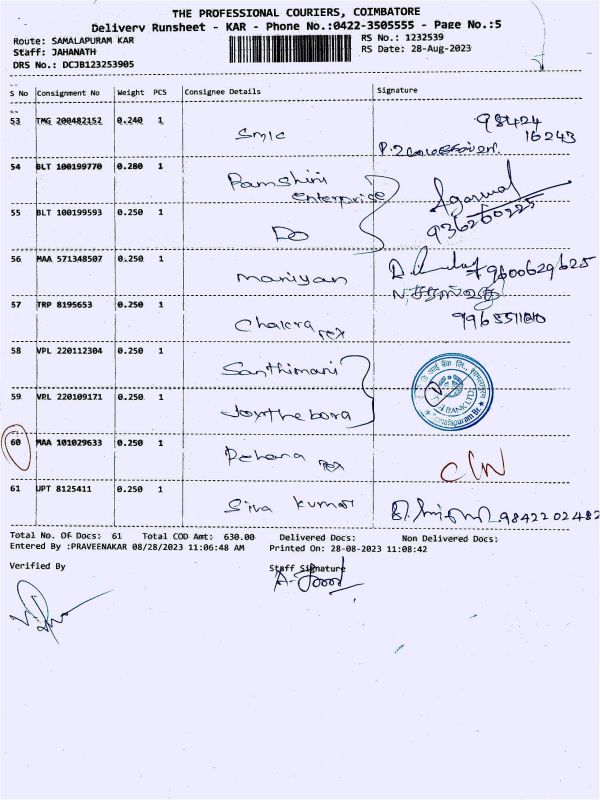 THE PROFESSIONAL COURIERS, COIMBATORE
Delivery Runsheet - KAR - Phone No.:0422-3505555 - Page No.:5
Route: SAMALAPURAM KAR RS No.: 1232539
Staff: JAHANATH RS Date: 28-Aug-2023
DRS No.: DCJB123253905
S No Consignment No Weight PCS Consignee Details Signature
53 TMG 200482152 0.240 1 98424
Smic 16243
54 BLT 100199770 0.280 1
Enterprise Agarwal
55 BLT 100199593 0.250 1
Do
56 MAA 571348507 0.250 1
maniyan 9600629625
57 TRP 8195653 0.250 1
Chakra Tex
58 VPL 220112304 0.250 1
Santhimani
59 VPL 220109171 0.250 1
BANK LTD.
60 MAA 101029633 0.250 1
61 UPT 8125411 0.250 1
Siva Kumar 9842202482
Total No. Of Docs: 61 Total COD Amt: 630.00 Delivered Docs: Non Delivered Docs:
Entered By :PRAVEENAKAR 08/28/2023 11:06:48 AM Printed On: 28-08-2023 11:08:42
Verified By Staff Signature